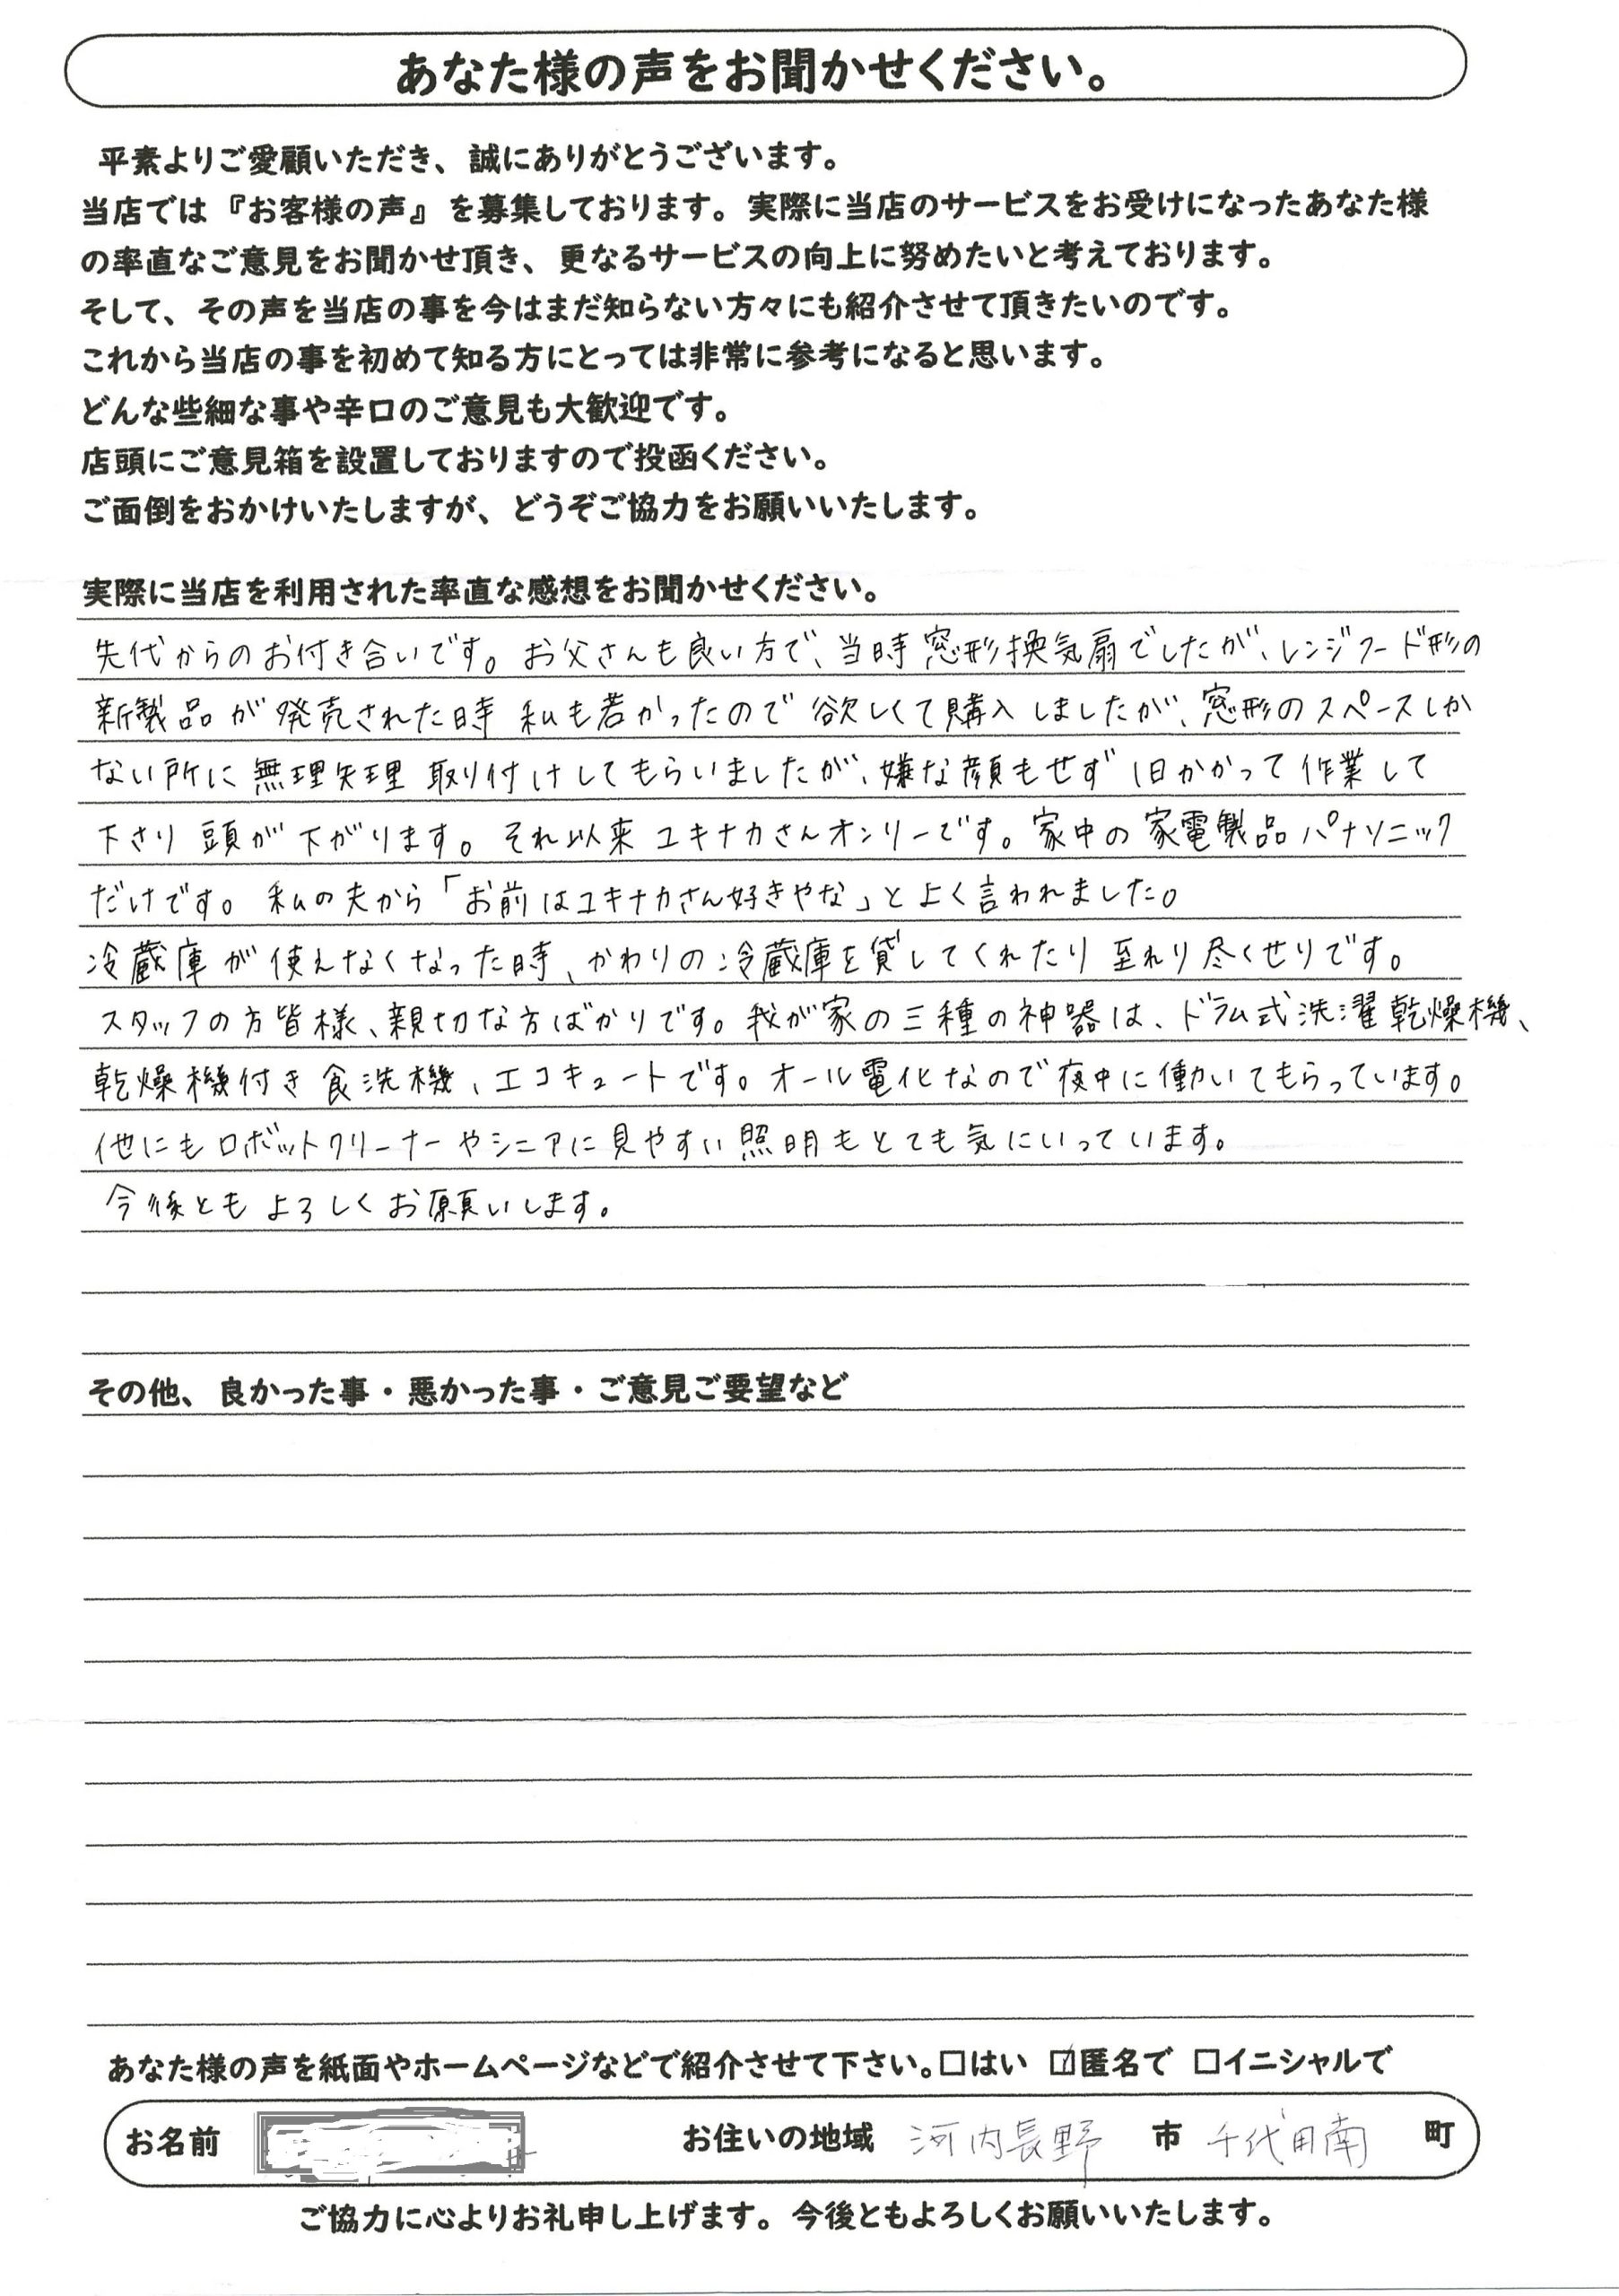 あなた様の声をお聞かせください。
平素よりご愛顧いただき、誠にありがとうございます。
当店では『お客様の声』を募集しております。実際に当店のサービスをお受けになったあなた様
の率直なご意見をお聞かせ頂き、更なるサービスの向上に努めたいと考えております。
そして、その声を当店の事を今はまだ知らない方々にも紹介させて頂きたいのです。
これから当店の事を初めて知る方にとっては非常に参考になると思います。
どんな些細な事や辛口のご意見も大歓迎です。
店頭にご意見箱を設置しておりますので投函ください。
ご面倒をおかけいたしますが、どうぞご協力をお願いいたします。
実際に当店を利用された率直な感想をお聞かせください。
先代からのお付き合いです。お父さんも良い方で、当時窓形換気扇でしたが、レンジフード形の
新製品が発売された時 私も若かったので欲しくて購入しましたが、窓形のスペースしか
ない所に無理矢理 取り付けしてもらいましたが、嫌な顔もせず1日かかって作業して
下さり 頭が下がります。それ以来ユキナカさんオンリーです。家中の家電製品パナソニック
だけです。私の夫から「お前はユキナカさん好きやな」とよく言われました。
冷蔵庫が使えなくなった時、かわりの冷蔵庫を貸してくれたり至れり尽くせりです。
スタッフの方皆様、親切な方ばかりです。我が家の三種の神器は、ドラム式洗濯乾燥機、
乾燥機付き食洗機、エコキュートです。オール電化なので夜中に働いてもらっています。
他にもロボットクリーナーやシニアに見やすい照明もとても気にいっています。
今後ともよろしくお願いします。
その他、良かった事・悪かった事・ご意見ご要望など
あなた様の声を紙面やホームページなどで紹介させて下さい。□はい ☑匿名で □イニシャルで
お名前 お住いの地域 河内長野 市 千代田南 町
ご協力に心よりお礼申し上げます。今後ともよろしくお願いいたします。